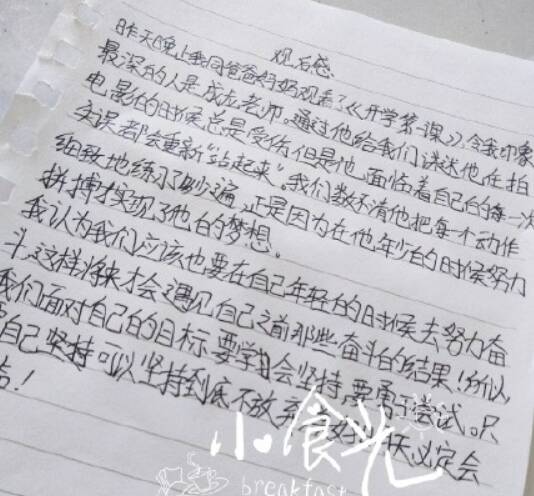 观后感
昨天晚上我同爸爸妈妈观看了《开学第一课》,令我印象
最深的人是成龙老师。通过他给我们讲述他,在拍
电影的时候总是受伤但是他,面临着自己的每一次
失误都会重新"站起来"。我们数不清他把每个动作
细致地练了多少遍,正是因为在他年少的时候努力
拼搏才实现了他的梦想。
我认为我们应该也要在自己年轻的时候去努力奋
斗,这样将来才会遇见自己之前那些奋斗的结果!所以,
我们面对自己的目标要学会坚持,要勇于尝试。只
自己坚持可以坚持到底不放弃
必定会
小食光
breakfast